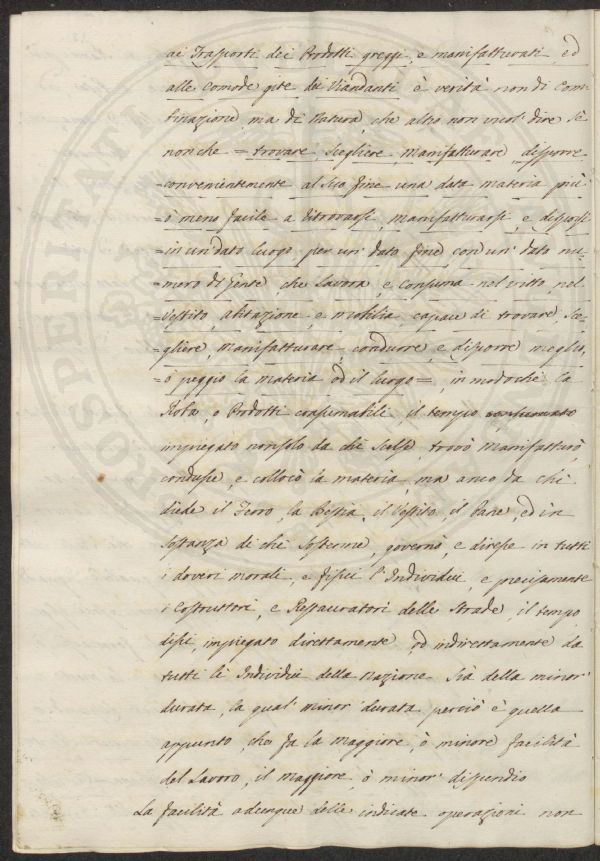 ai Trasporti dei Prodotti greggi, e manifatturati, ed
alle comode gite dei Viandanti è verità non di Com
binazione, ma di Natura, che altro non vuol' dire se
nonche = trovare, scegliere, manifatturare, disporre
convenientemente al suo fine una data materia più
ò meno facile a ritrovarsi, manifatturarsi, e disporsi
in un' dato luogo per un' dato fine con un' dato nu=
mero di Gente, che lavora, e consuma nel vitto nel
Vestito, abitazione, e mobilia capace di trovare, sce
gliere, manifatturare, condurre, e disporre meglio,
ò peggio la materia od il luogo =, in modo che la
Roba, o Prodotti consumabili, il tempo consumato
impiegato non solo da chi scelse, trovò manifatturò,
condusse, e collocò la materia, ma anco da chi
diede il Ferro, la Bestia, il Vestito, il Pane, ed in
sostanza di chi sostenne, governò, e diresse in tutti
i doveri morali, e fisici l'Individui, e precisamente
i Costruttori, e Restauratori delle Strade, il tempo
dissi, impiegato direttamente, od indirettamente da
tutti li Individui della Nazione sia della minor'
durata, la qual' minor' durata perciò è quella
appunto, che fa la maggiore, ò minore facilità
del Lavoro, il maggiore, ò minor' dispendio
La facilità adunque delle indicate operazioni non
PROSPERITAT